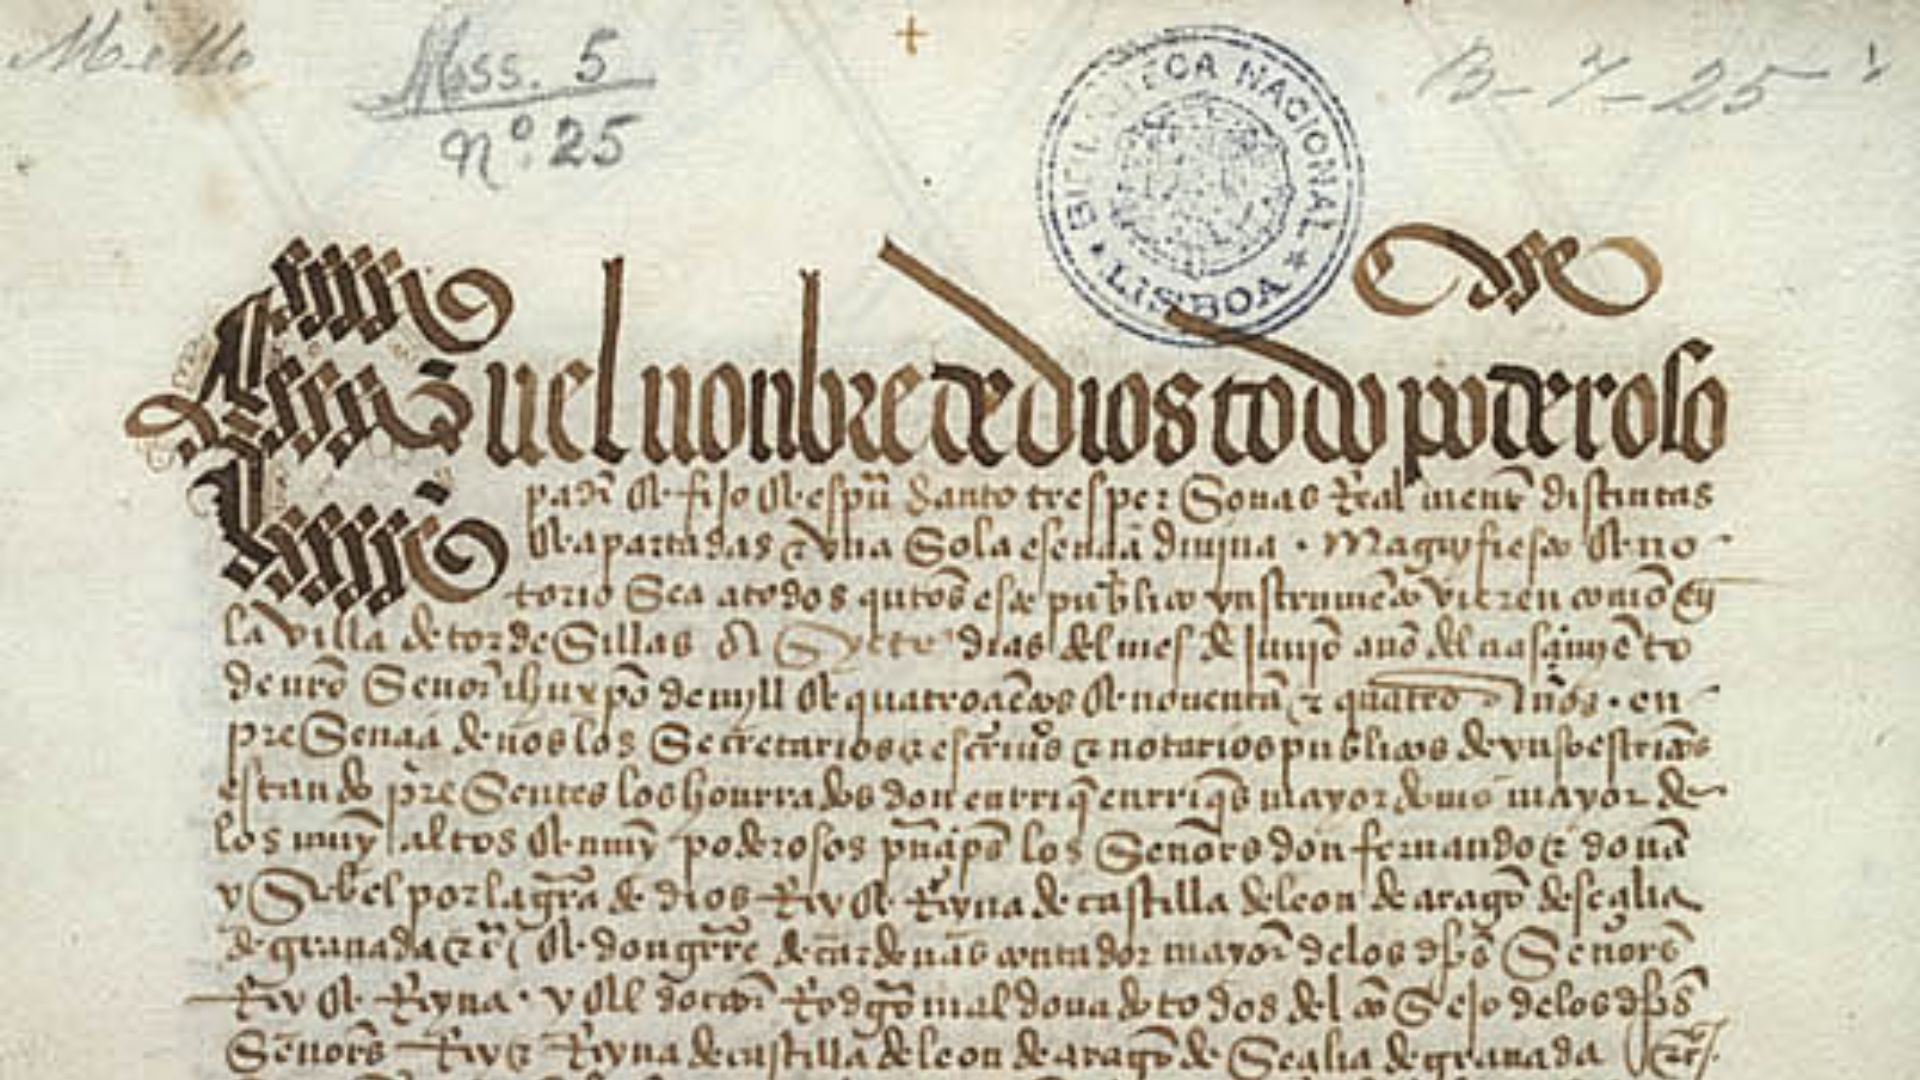 Mss. 5
nº. 25
B-7-25
BIBLIOTECA NACIONAL
★ LISBOA ★
En el nonbre de dios todo poderoso
padre & fijo & espũ Santo tres per Sonas Real mente distintas
& apartadas & vna Sola esençia diuina · Magnifiesto & no
torio Sea a todos quãtos este publico ynstrumẽto vieren como en
la villa de tordeSillas A Syete dias del mes de Junjo año del nasçimyẽto
de nrõ Senor ihu xpõ de myll & quatroçiẽtos & nouenta & quatro Años · en
preSençia de nos los Secretarios & escriuãos & notarios publicos de yuso escriptos
estando preSentes los honrrados don enrriq̃ enrriqz̃ mayordomo mayor de
los muy altos & muy poderosos prinçipes los Señores don fernando & doña
ySabel por la grã de dios Rey & Reyna de castilla de leon de aragõ de seçilia
de granada & & don gtrre de cardenas contador mayor de los dhõs Señores
Rey & Reyna · y del doctor Rodgõ maldonado todos del conSejo de los dhõs
Señores Rey & Reyna de castilla de leon de aragõ de Seçilia de granada